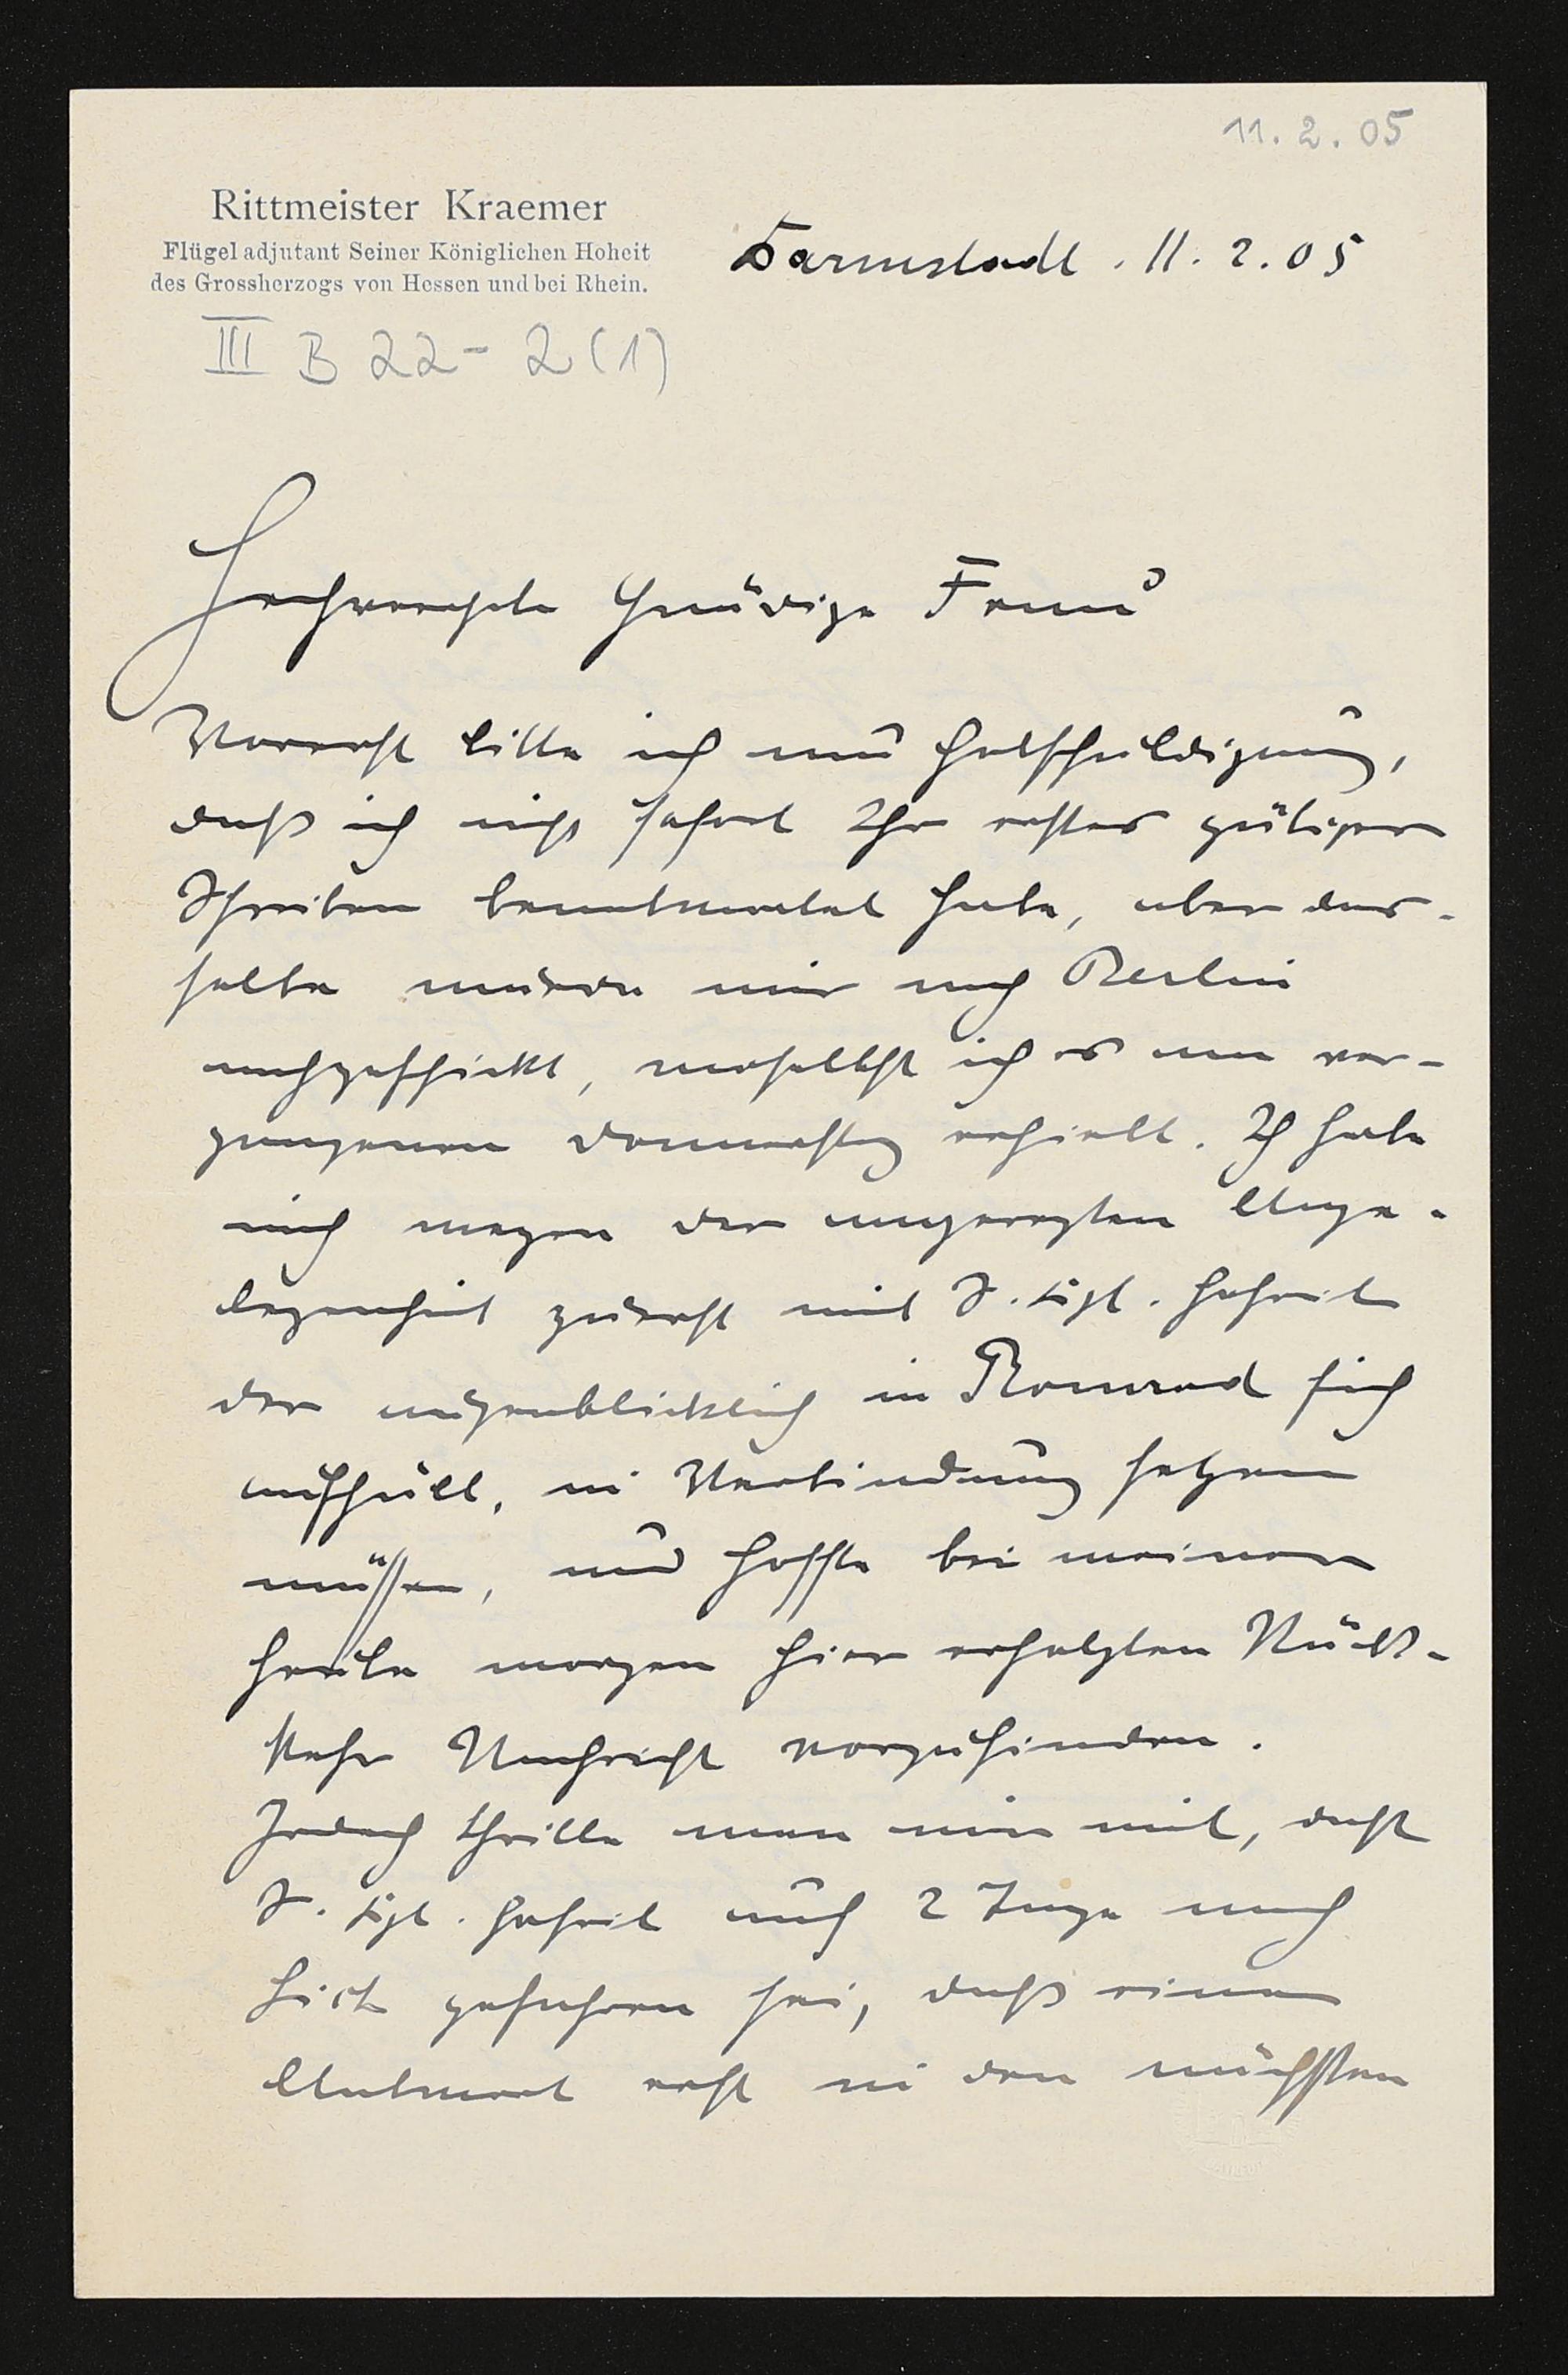 11. 2. 05
Rittmeister Kraemer
Flügeladjutant Seiner Königlichen Hoheit
des Grossherzogs von Hessen und bei Rhein.
Darmstadt. 11. 2. 05
III B 22 - 2 (1)
Hochverehrte Gnädige Frau
Vorerst bitte ich um Entschuldigung,
daß ich nicht sofort Ihr erstes gütiges
Schreiben beantwortet habe, aber das-
selbe wurde mir nach Berlin
nachgeschickt, woselbst ich es am ver-
gangenen Donnerstag erhielt. Ich habe
mich wegen der angeregten Ange-
legenheit zuerst mit S. Kgl. Hoheit
der augenblicklich in Romrod sich
aufhält, in Verbindung setzen
müssen, und hoffte bei meiner
heute morgen hier erfolgten Rück-
kehr Nachricht vorzufinden.
Jedoch theilte man mir mit, daß
S. Kgl. Hoheit auf 2 Tage nach
Lich gefahren sei, daß eine
Antwort erst in den nächsten